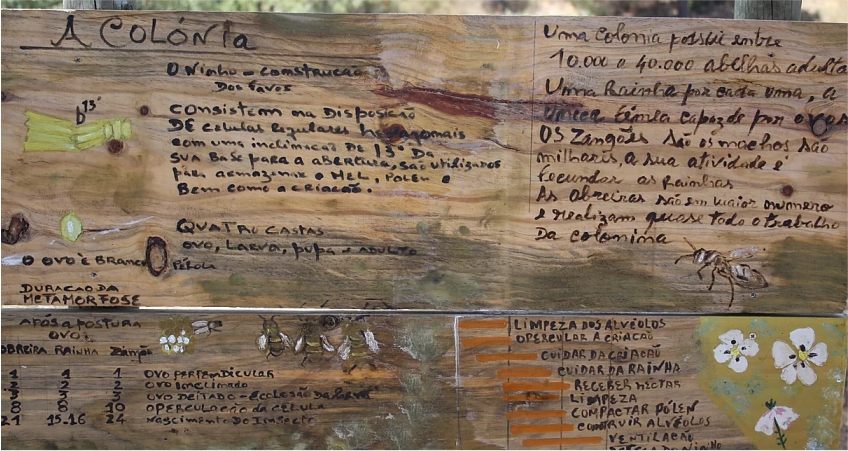 A COLÓNIA
O Ninho - Construcao
Dos favos
13°
CONSISTEM NA DISPOSICÃO
DE CELULAS REGULARES hexagonais
com uma inclinacão DE 13° DA
SUA BASE PARA A ABERTURA, são utilizados
para armazenar o MEL, POLEN e
Bem como a criacão.
QUATRO CASTAS
ovo, LARVA, pupa e ADULTO
O OVO É BRANCO PÉROLA
DURACAO DA
METAMORFOSE
Uma colonia possui entre
10.000 a 40.000 abelhas adulta
Uma Rainha por cada uma, a
unica femea capaz de por ovos
OS Zangões são os machos são
milhares, a sua atividade é
fecundar as Rainhas
As obreiras são em maior numero
e realizam quase todo o trabalho
Da colonima
APÓS A POSTURA
OVO
OBREIRA RAINHA Zangão
1 1 1 OVO PERPENDICULAR
2 2 2 OVO Inclinado
3 3 3 OVO DEITADO - ECLOSÃO DA larva
8 8 10 OPERCULACÃO da CELULA
21 15-16 24 Nascimento Do Insecto
LIMPEZA DOS ALVÉOLOS
OPERCULAR A CRIACÃO
CUIDAR DA CRIACÃO
CUIDAR DA RAINHA
RECEBER NECTAR
LIMPEZA
COMPACTAR PÓLEN
CONSTRUIR ALVÉOLOS
VENTILACÃO